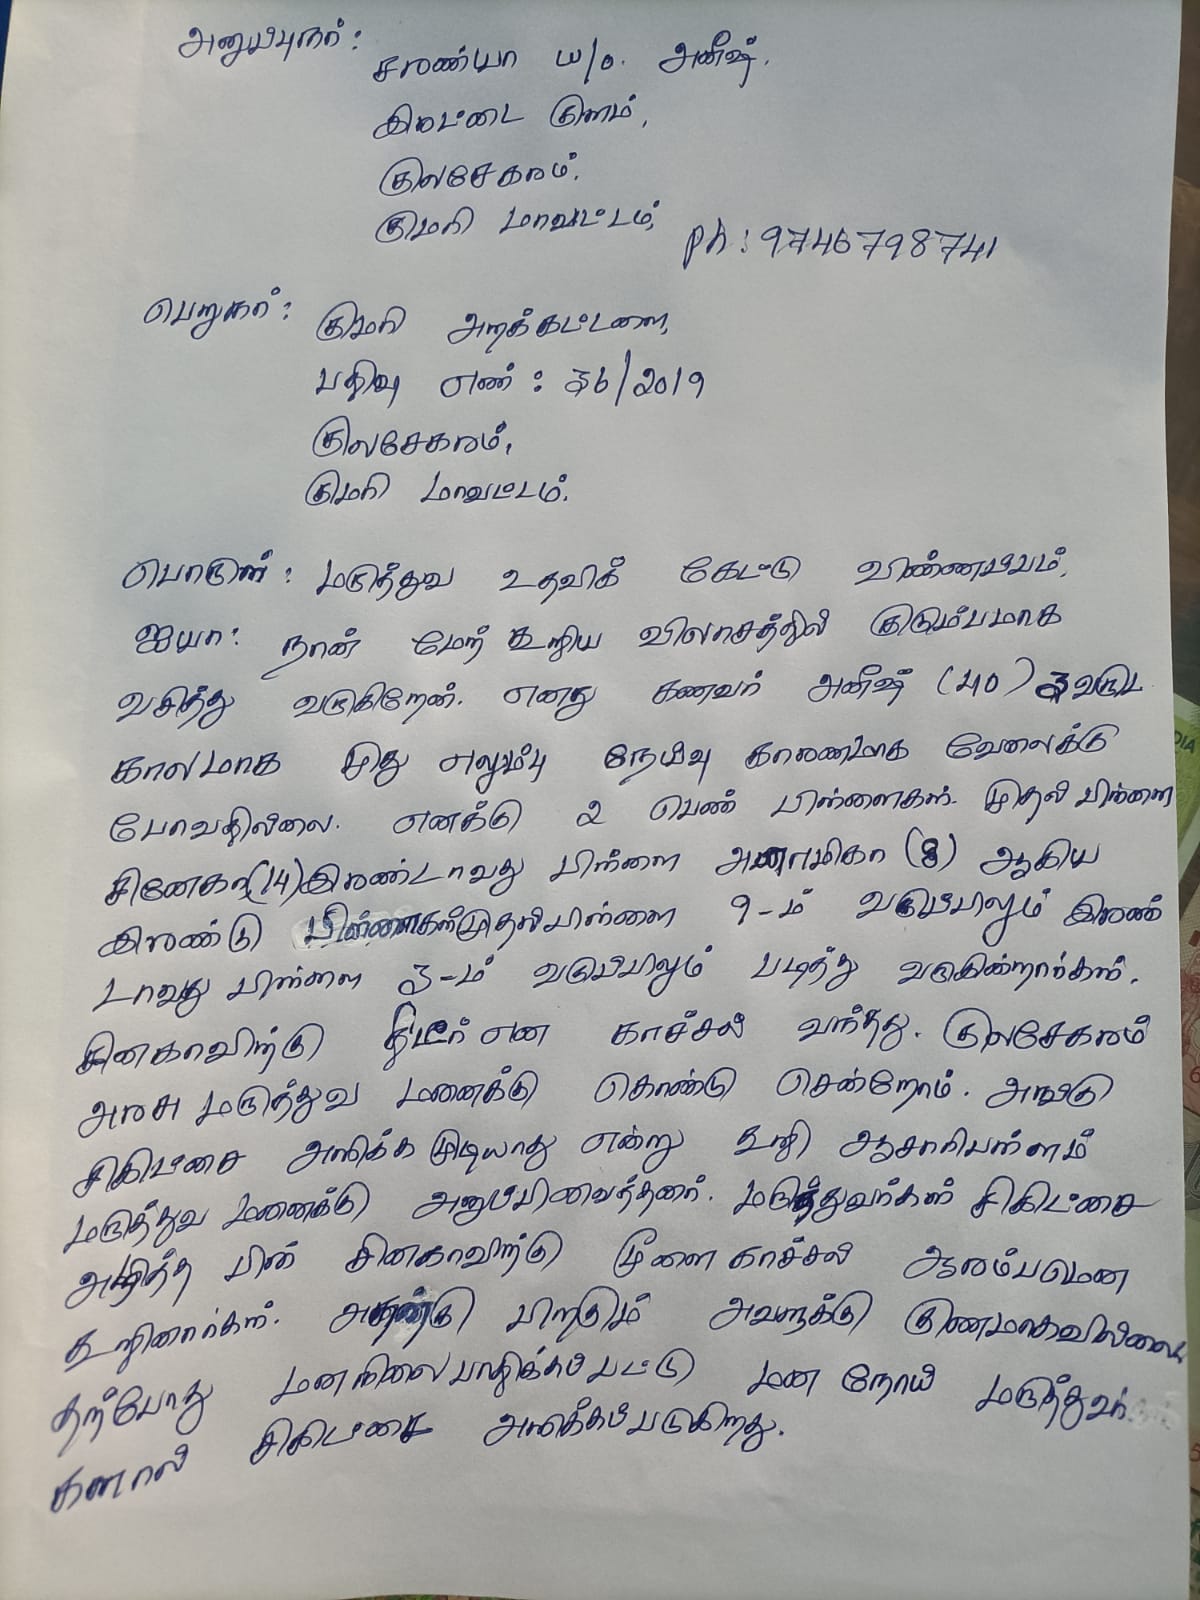 அனுப்புநர்:
சரண்யா W/o. அனீஷ்,
இரட்டை குளம்,
குலசேகரம்,
குமரி மாவட்டம், Ph: 9746798741
பெறுநர்:
குமரி அறக்கட்டளை,
பதிவு எண்: 36/2019
குலசேகரம்,
குமரி மாவட்டம்.
பொருள்: மருத்துவ உதவிக் கேட்டு விண்ணப்பம்,
ஐயா: நான் மேற் கூறிய விலாசத்தில் குடும்பமாக
வசித்து வருகிறேன். எனது கணவர் அனீஷ் (40) 3 வருட
காலமாக முது எலும்பு நேய்வு காரணமாக வேலைக்கு
போவதில்லை. எனக்கு 2 பெண் பிள்ளைகள். முதல் பிள்ளை
சினேகா(14)இரண்டாவது பிள்ளை அனாமிகா (8) ஆகிய
இரண்டு பிள்ளைகள்முதல்பிள்ளை 9-ம் வகுப்பிலும் இரண்
டாவது பிள்ளை 3-ம் வகுப்பிலும் படித்து வருகின்றார்கள்.
சினகாவிற்கு திடீர் என காச்சல் வந்தது. குலசேகரம்
அரசு மருத்துவ மனைக்கு கொண்டு சென்றோம். அங்கு
சிகிட்சை அளிக்க முடியாது என்று கூறி ஆசாரிபள்ளம்
மருத்துவ மனைக்கு அனுப்பிவைத்தனர். மருத்துவர்கள் சிகிட்சை
அளித்த பின் சினகாவிற்கு மூளை காச்சல் ஆரம்பமென
கூறினார்கள். பிறகும் அவளுக்கு குணமாகவில்லை
தற்போது மனநிலை பாதிக்கப்பட்டு மன நோய் மருத்துவர்
களால் சிகிட்சை அளிக்கப்படுகிறது.